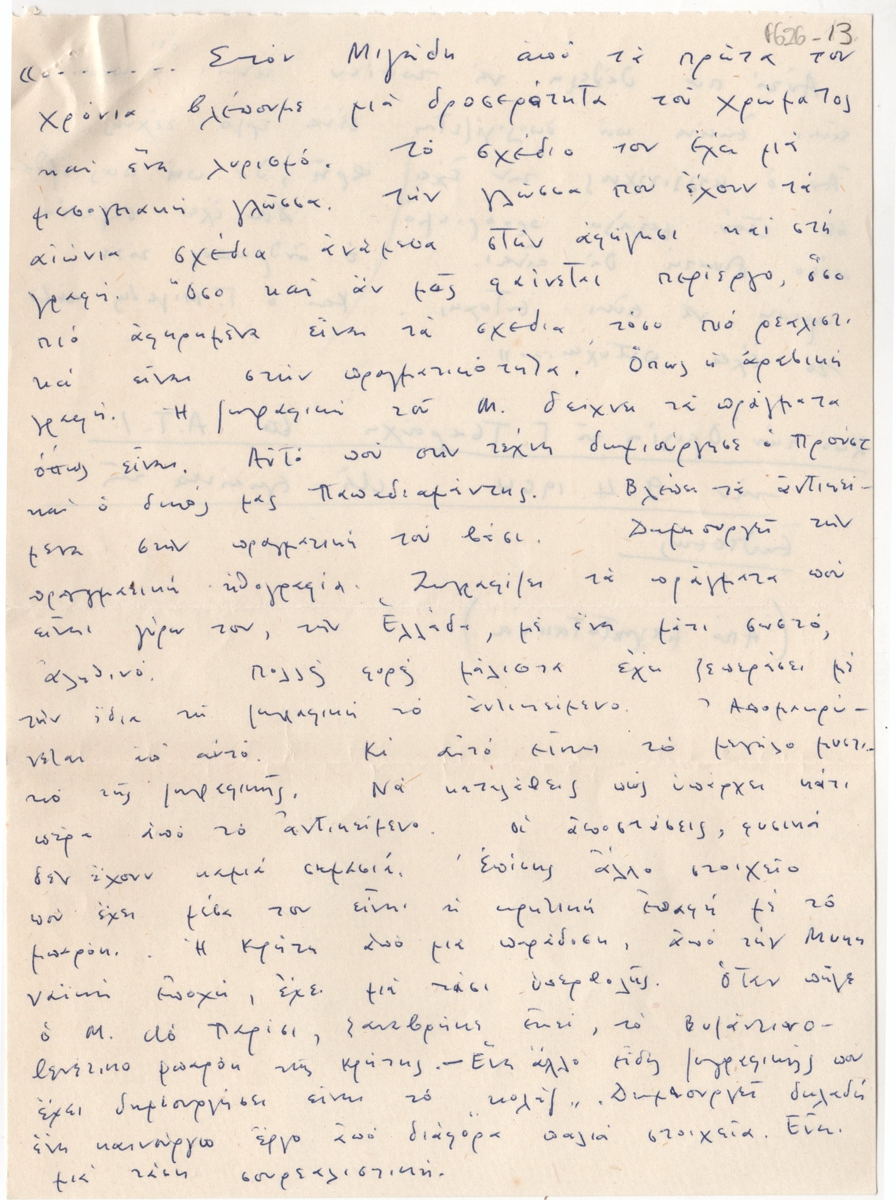 F626-13
«......... Στόν Μιγάδη από τά πρώτα του
χρόνια βλέπουμε μιά δροσερότητα του χρώματος
και ένα λυρισμό. Τό σχέδιο του έχει μιά
μεσογειακή γλώσσα. Τήν γλώσσα που έχουν τά
αιώνια σχέδια ανάμεσα στήν αφήγηση και στή
γραφή. Όσο καί άν μάς φαίνεται περίεργο, όσο
πιό αφηρημένα είναι τά σχέδια τόσο πιό ρεαλιστι-
κά είναι στήν πραγματικότητα. Όπως ή αραβική
γραφή. Η ζωγραφική τού Μ. δείχνει τά πράγματα
όπως είναι. Αυτό πού στήν τέχνη δημιούργησε ό Προύστ
καί ό δικός μας Παπαδιαμάντης. Βλέπει τά αντικεί-
μενα στήν πραγματική τού βάσι. Δημιουργεί τήν
πραγματική ηθογραφία. Ζωγραφίζει τά πράγματα πού
είναι γύρω του, τήν Ελλάδα, μέ ένα μάτι σωστό,
αληθινό. Πολλές φορές μάλιστα έχει ξεπεράσει μέ
τήν ίδια τή ζωγραφική τό αντικείμενο. Απομακρύ-
νεται από αυτό. Κι αυτό είναι τό μεγάλο μυστι-
κό τής ζωγραφικής. Νά καταλάβεις πώς υπάρχει κάτι
πέρα από τό αντικείμενο. οί αποστάσεις, φυσικά
δεν έχουν καμιά σημασία. Επίσης άλλο στοιχείο
πού έχει μέσα του είναι ή κρητική επαφή μέ τό
μπαρόκ. Η Κρήτη από μια παράδοση, από τήν Μυκη
ναϊκή εποχή, έχει μιά τάσι υπερβολής. Όταν πήγε
ό Μ. στό Παρίσι, ξαναβρήκε εκεί, τό Βυζαντινο-
βενετικο μπαρόκ τής Κρήτης.— Ένα άλλο είδος ζωγραφικής που
έχει δημιουργήσει είναι τό "κολάζ". Δημιουργεί δηλαδή
ένα καινούργιο έργο από διάφορα παλιά στοιχεία. Είναι
μιά τάση σουρεαλιστική.